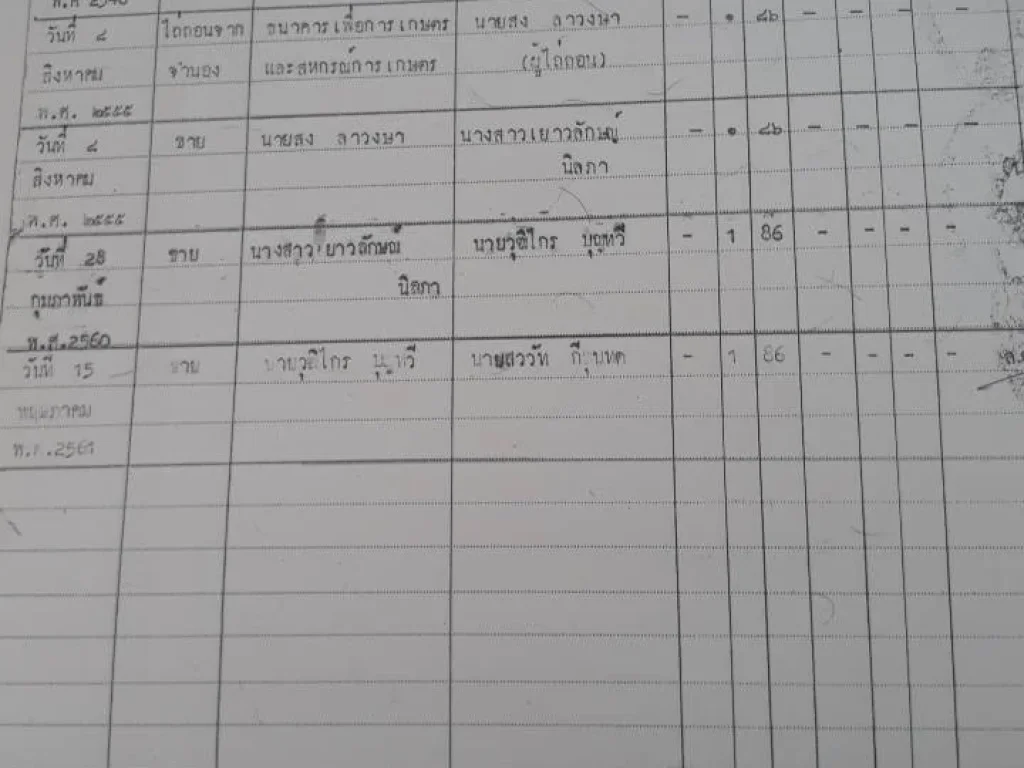 วันที่ ๘ ไถ่ถอนจาก ธนาคารเพื่อการเกษตร นายสง ลาวงษา - ๑ ๘๖ - - - -
สิงหาคม จำนอง และสหกรณ์การเกษตร (ผู้ไถ่ถอน)
พ.ศ. ๒๕๕๕
วันที่ ๘ ขาย นายสง ลาวงษา นางสาวเยาวลักษณ์ - ๑ ๘๖ - - - -
สิงหาคม นิลภา
พ.ศ. ๒๕๕๕
วันที่ 28 ขาย นางสาวเยาวลักษณ์ นายวุฒิไกร - 1 86 - - - -
กุมภาพันธ์ นิลภา
พ.ศ.2560
วันที่ 15 ขาย นายวุฒิไกร - 1 86 - - - -
พฤษภาคม
พ.ศ.2561